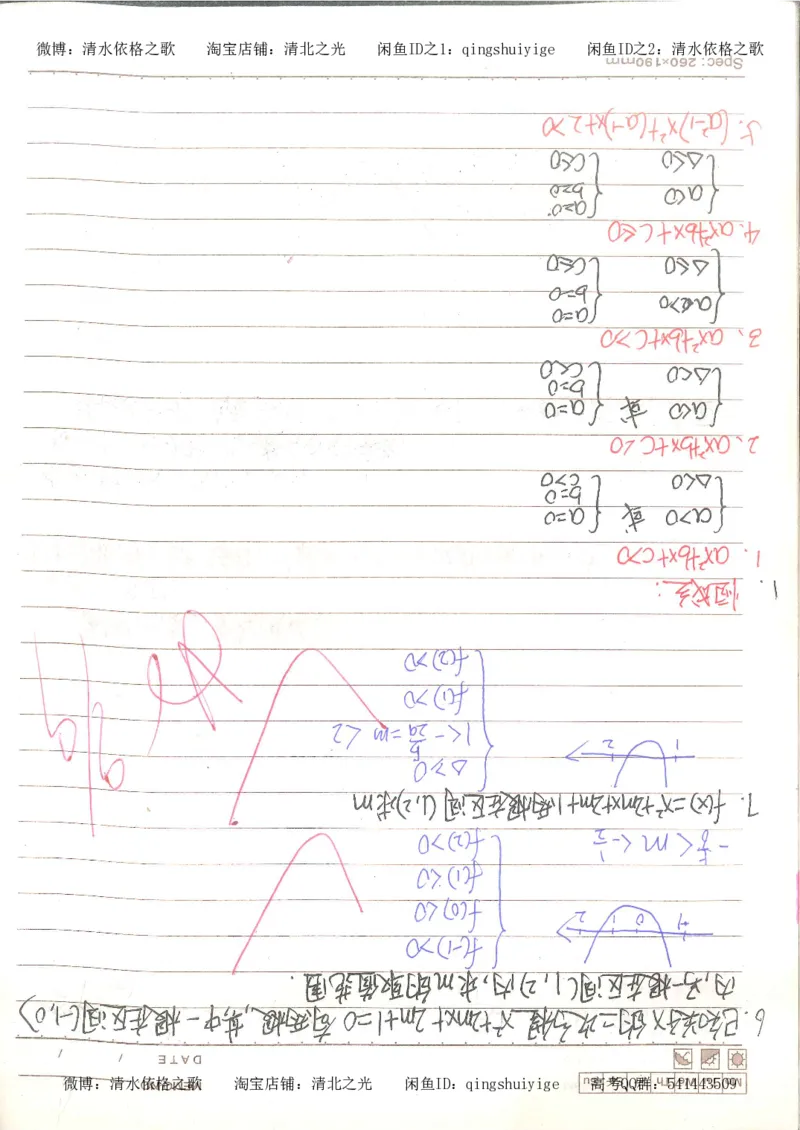 微博：清水依格之歌 淘宝店铺：清北之光 闲鱼ID之1：qingshuiyige 闲鱼ID之2：清水依格之歌
DATE
6. 已知关于x的二次方程 x²+2mx+2m+1=0 有两根，其中一根在区间(-1,0)
内，另一根在区间(1,2)内，求m的取值范围．
-1 0 1 2
f(-1)>0
f(0)<0
f(1)<0
f(2)>0
-5/6<m<-1/2
7. f(x)=x²+2mx+2m+1 两根在区间(1,2)求m
1 2
Δ≥0
1<-b/2a=m<2
f(1)>0
f(2)>0
5/6
1. 恒成立：
1. ax²+bx+c>0
a>0 或 a=0
Δ<0 b=0
c>0
2、ax²+bx+c<0
a<0 或 a=0
Δ<0 b=0
c<0
3、ax²+bx+c≥0
a>0 a=0
b=0
Δ≤0 c≥0
4. ax²+bx+c≤0
a<0 a=0
b=0
Δ≤0 c≤0
5. (a²-1)x²+(a-1)x+2>0
Spec: 260×190mm
微博：清水依格之歌 淘宝店铺：清北之光 闲鱼ID：qingshuiyige 高考QQ群：541443509